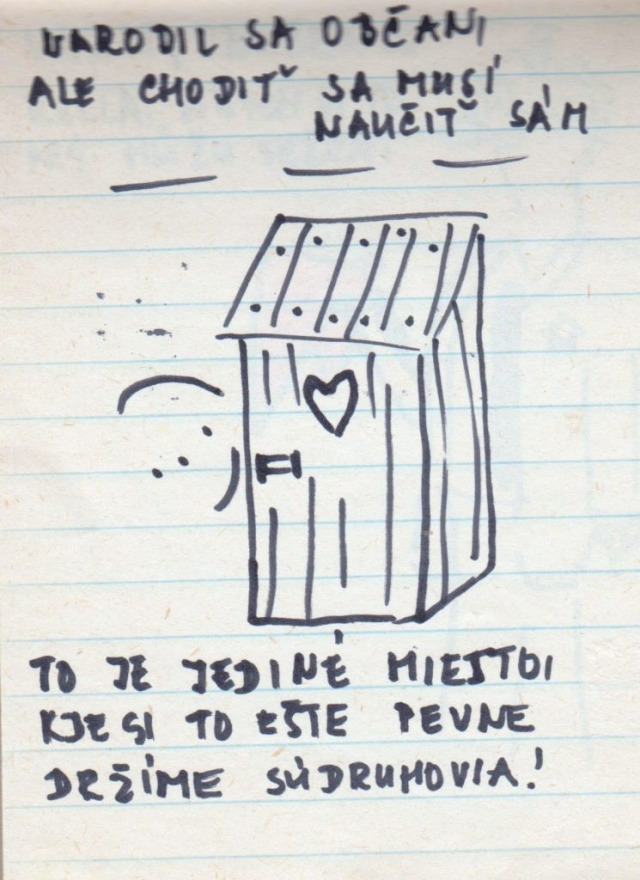 NARODIL SA OBČAN,
ALE CHODIŤ SA MUSÍ
NAUČIŤ SÁM
TO JE JEDINÉ MIESTO,
KDE SI TO EŠTE PEVNE
DRŽÍME SÚDRUHOVIA!